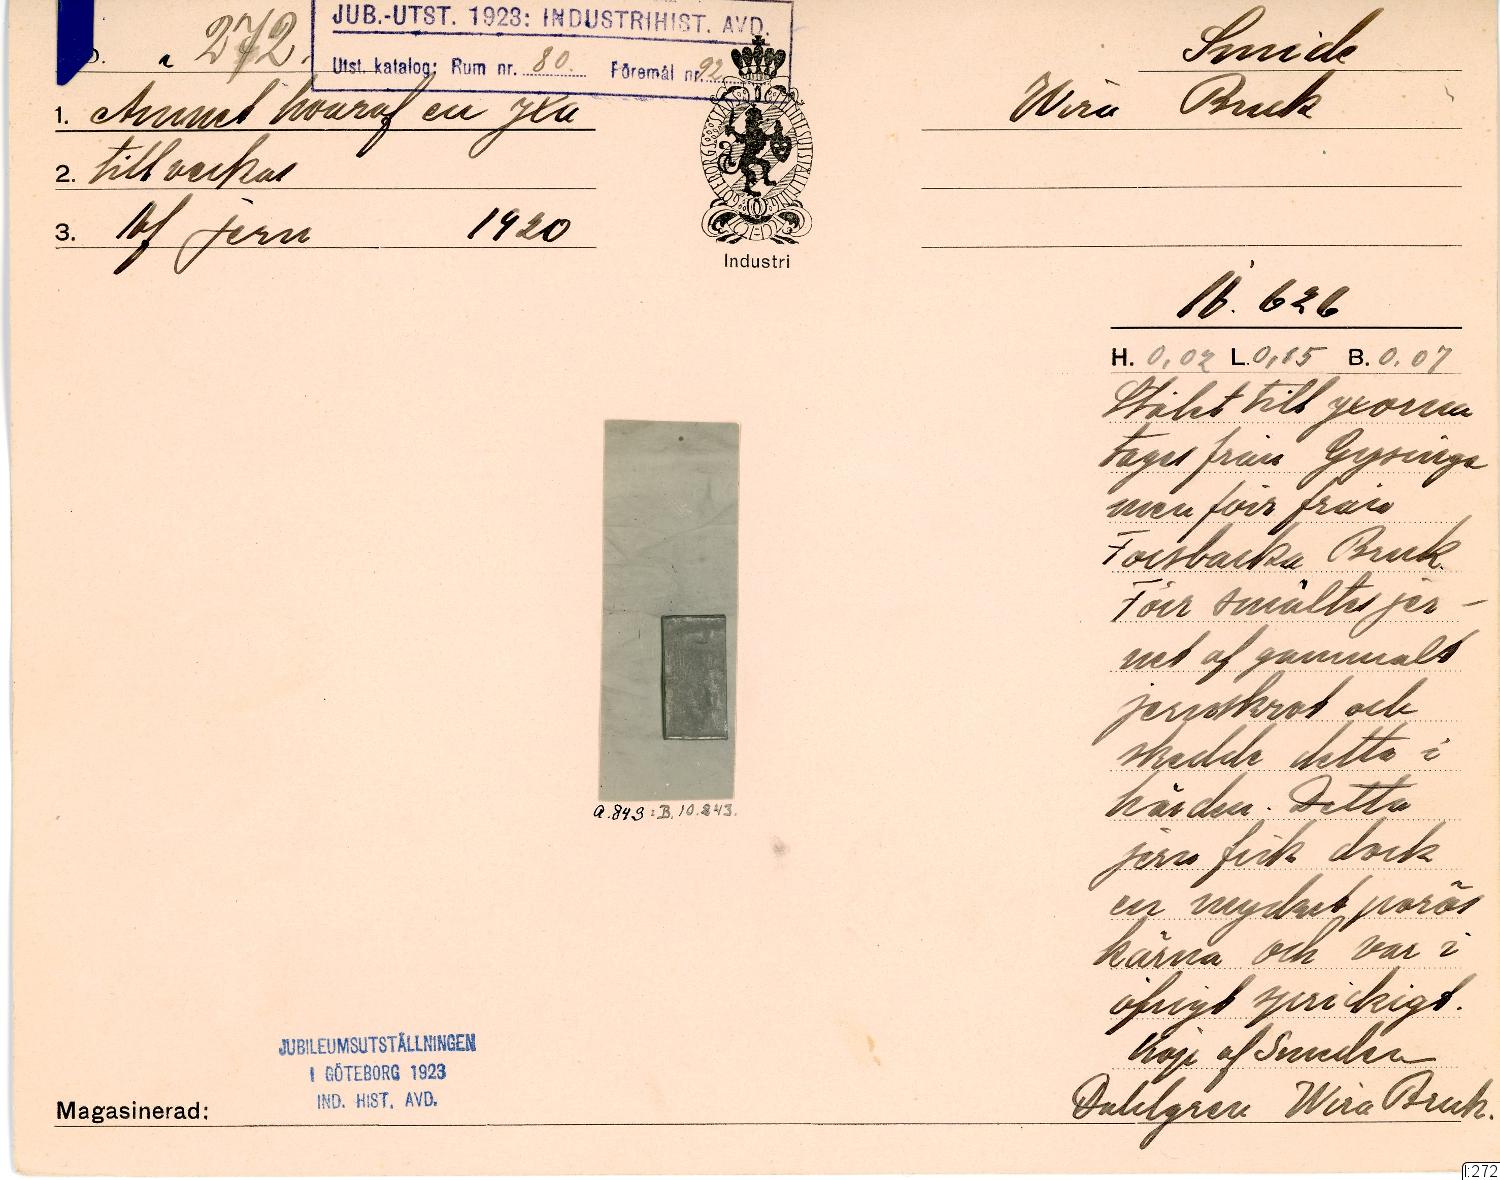 272.
JUB.-UTST. 1923: INDUSTRIHIST. AVD.
Utst. katalog: Rum nr. 80. Föremål nr. 92
1. Ämnet hvaraf en yxa
2. tillverkas
3. Af jern 1920
GÖTEBORGS STADS MINNESUTSTÄLLNING
Industri
Smide
Wira Bruk
N. 626
H. 0,02 L. 0,15 B. 0.07
Stålet till yxorna
tages från Gysinge
men förr från
Forsbacka Bruk.
Förr smältes jer-
net af gammalt
jernskrot och
skedde detta i
härden. Detta
jern fick dock
en mycket porös
kärna och var i
öfrigt sprickigt.
af Smeden
Dahlgren Wira Bruk.
a.843: B. 10.843.
JUBILEUMSUTSTÄLLNINGEN
I GÖTEBORG 1923
IND. HIST. AVD.
Magasinerad:
I:272